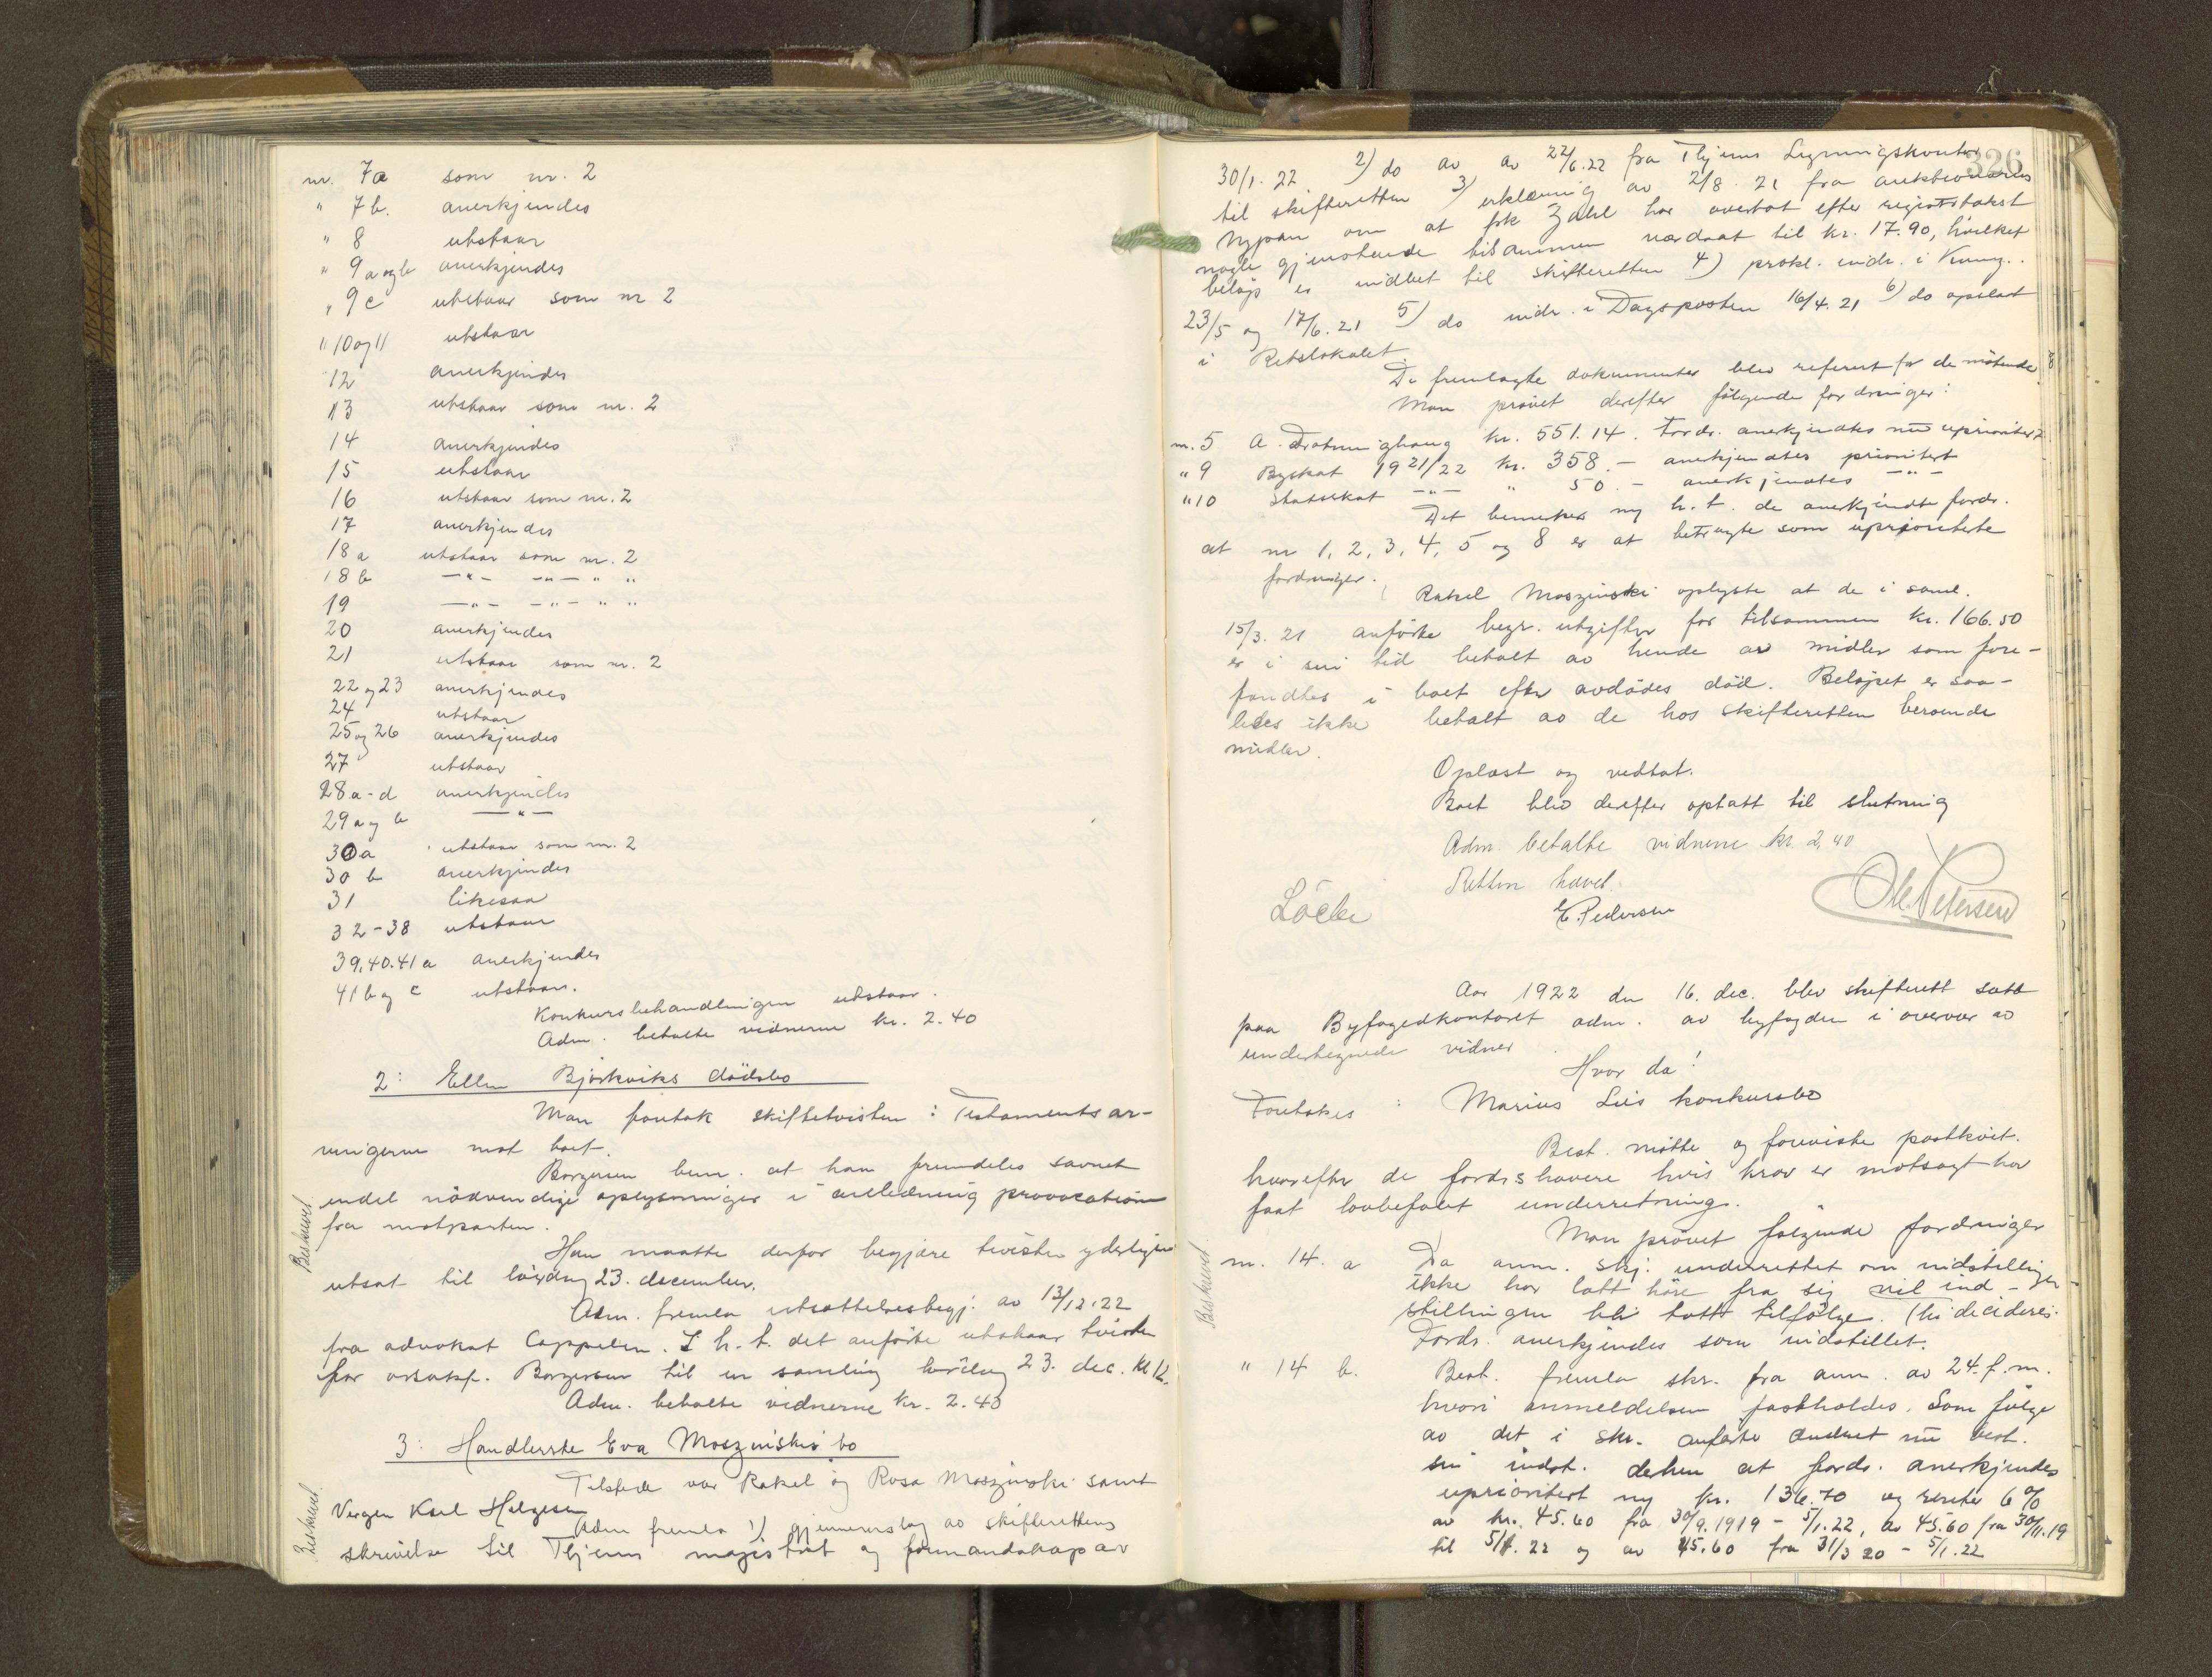 nr. 7a som nr. 2
" 7b. anerkjendes
" 8 utstaar
" 9a og b anerkjendes
" 9c utstaar som nr 2
" 10 og 11 utstaar
12 anerkjendes
13 utstaar som nr. 2
14 anerkjendes
15 utstaar
16 utstaar som nr. 2
17 anerkjendes
18a utstaar som nr. 2
18b —"— —"— " "
19 —"— —"— " "
20 anerkjendes
21 utstaar som nr. 2
22 og 23 anerkjendes
24 utstaar
25 og 26 anerkjendes
27 utstaar
28a-d anerkjendes
29a og b —"—
30a utstaar som nr. 2
30 b anerkjendes
31 likesaa
32-38 utstaar
39, 40. 41 a anerkjendes
41 b og c utstaar.
Konkursbehandlingen utstaar.
Adm. betalte vidnerne kr. 2.40
2: Ellen Bjørkviks dödsbo
Man foretok skiftetvisten: Testamentsar-
vingerne mot boet.
Borgersen bem. at han fremdeles savnet
endel nödvendige oplysninger i anledning provocation
fra motparten.
Beskrevet
Han maatte derfor begjære tvisten yderligere
utsat til lördag 23. december.
Adm. fremla utsættelsesbegj. av 13/12.22
fra advokat Cappelen. I h. t. det anförte utstaar tvisten
for orsakf. Borgersen til en samling lördag 23. dec. kl 12.
Adm. betalte vidnerne kr. 2.40
3: Handlerske Eva Moszinskis bo
Tilstede var Rakel og Rosa Moszinski samt
Vergen Karl Helgesen
Beskrevet
Adm fremla 1) gjennemslag av skifterettens
skrivelse til Thjems magistrat og formandskap av
326
30/1. 22 2) do av av 22/6.22 fra Thjems Ligningskontor
til skifteretten 3) erklæring av 2/8. 21 fra auktionarius
Nypan om at frk Zahl har overtat efter registstakst
nogle gjenstande tilsammen værdsat til kr. 17.90, hvilket
belöp er indbet til skifteretten 4) prokl. indr. i Kunng..
23/5 og 17/6. 21 5) do indr. i Dagsposten 16/4. 21 6) do opslaat
i Retslokalet.
De fremlagte dokumenter blev referert for de mötende
Man prövet derefter fölgende fordringer:
nr. 5 A. kr. 551.14. Fordr. anerkjendtes nu uprioritert
" 9 Byskat 1921/22 kr. 358.— anerkjendtes prioritert
" 10 Statsskat —"— " 50.— anerkjendtes —"—
Det bemerkes ny h. t. de anerkjendte fordr.
at nr 1, 2, 3, 4, 5 og 8 er at betragte som upriorterte
fordringer.
Rakel Moszinski oplyste at de i saml.
15/3. 21 anförte begr. utgifter for tilsammen kr. 166.50
er i sin tid betalt av hende av midler som fore-
fandtes i boet efter avdödes död. Belöpet er saa-
ledes ikke betalt av de hos skifteretten beroende
midler.
Oplæst og vedtat.
Boet blev derefter optatt til slutning
Adm. betalte vidnerne kr. 2,40
Retten hævet.
Löcke
E. Pedersen
Ole Petersen
Aar 1922 den 16. dec. blev skifterett satt
paa Byfogedkontoret adm. av byfogden i overvær av
undertegnede vidner.
Hvor da!
Foretokes: Marius Lies konkursbo
Best. mötte og foreviste postkvit.
hvorefter de fordrshavere hvis krav er motsagt har
faat lovbefalet underretning.
Man prövet fölgende fordringer
Beskrevet
nr. 14. a Da anm. skj. underrettet om indstillingen
ikke har latt höre fra sig vil ind-
stillingen bli tatt tilfölge.
Fordr. anerkjendes som indstillet.
" 14 b. Best. fremla skr. fra anm. av 24. f. m.
hvori anmeldelsen fastholdes. Som fölge
av det i skr. anförte ændret nu best.
sin indst. derhen at fordr. anerkjendes
uprioritert ny kr. 136.70 og renter 6%
av kr. 45.60 fra 30/9.1919 – 5/1.22, av 45.60 fra 30/11.19
til 5/1. 22 og av 45.60 fra 31/3 20 – 5/1.22